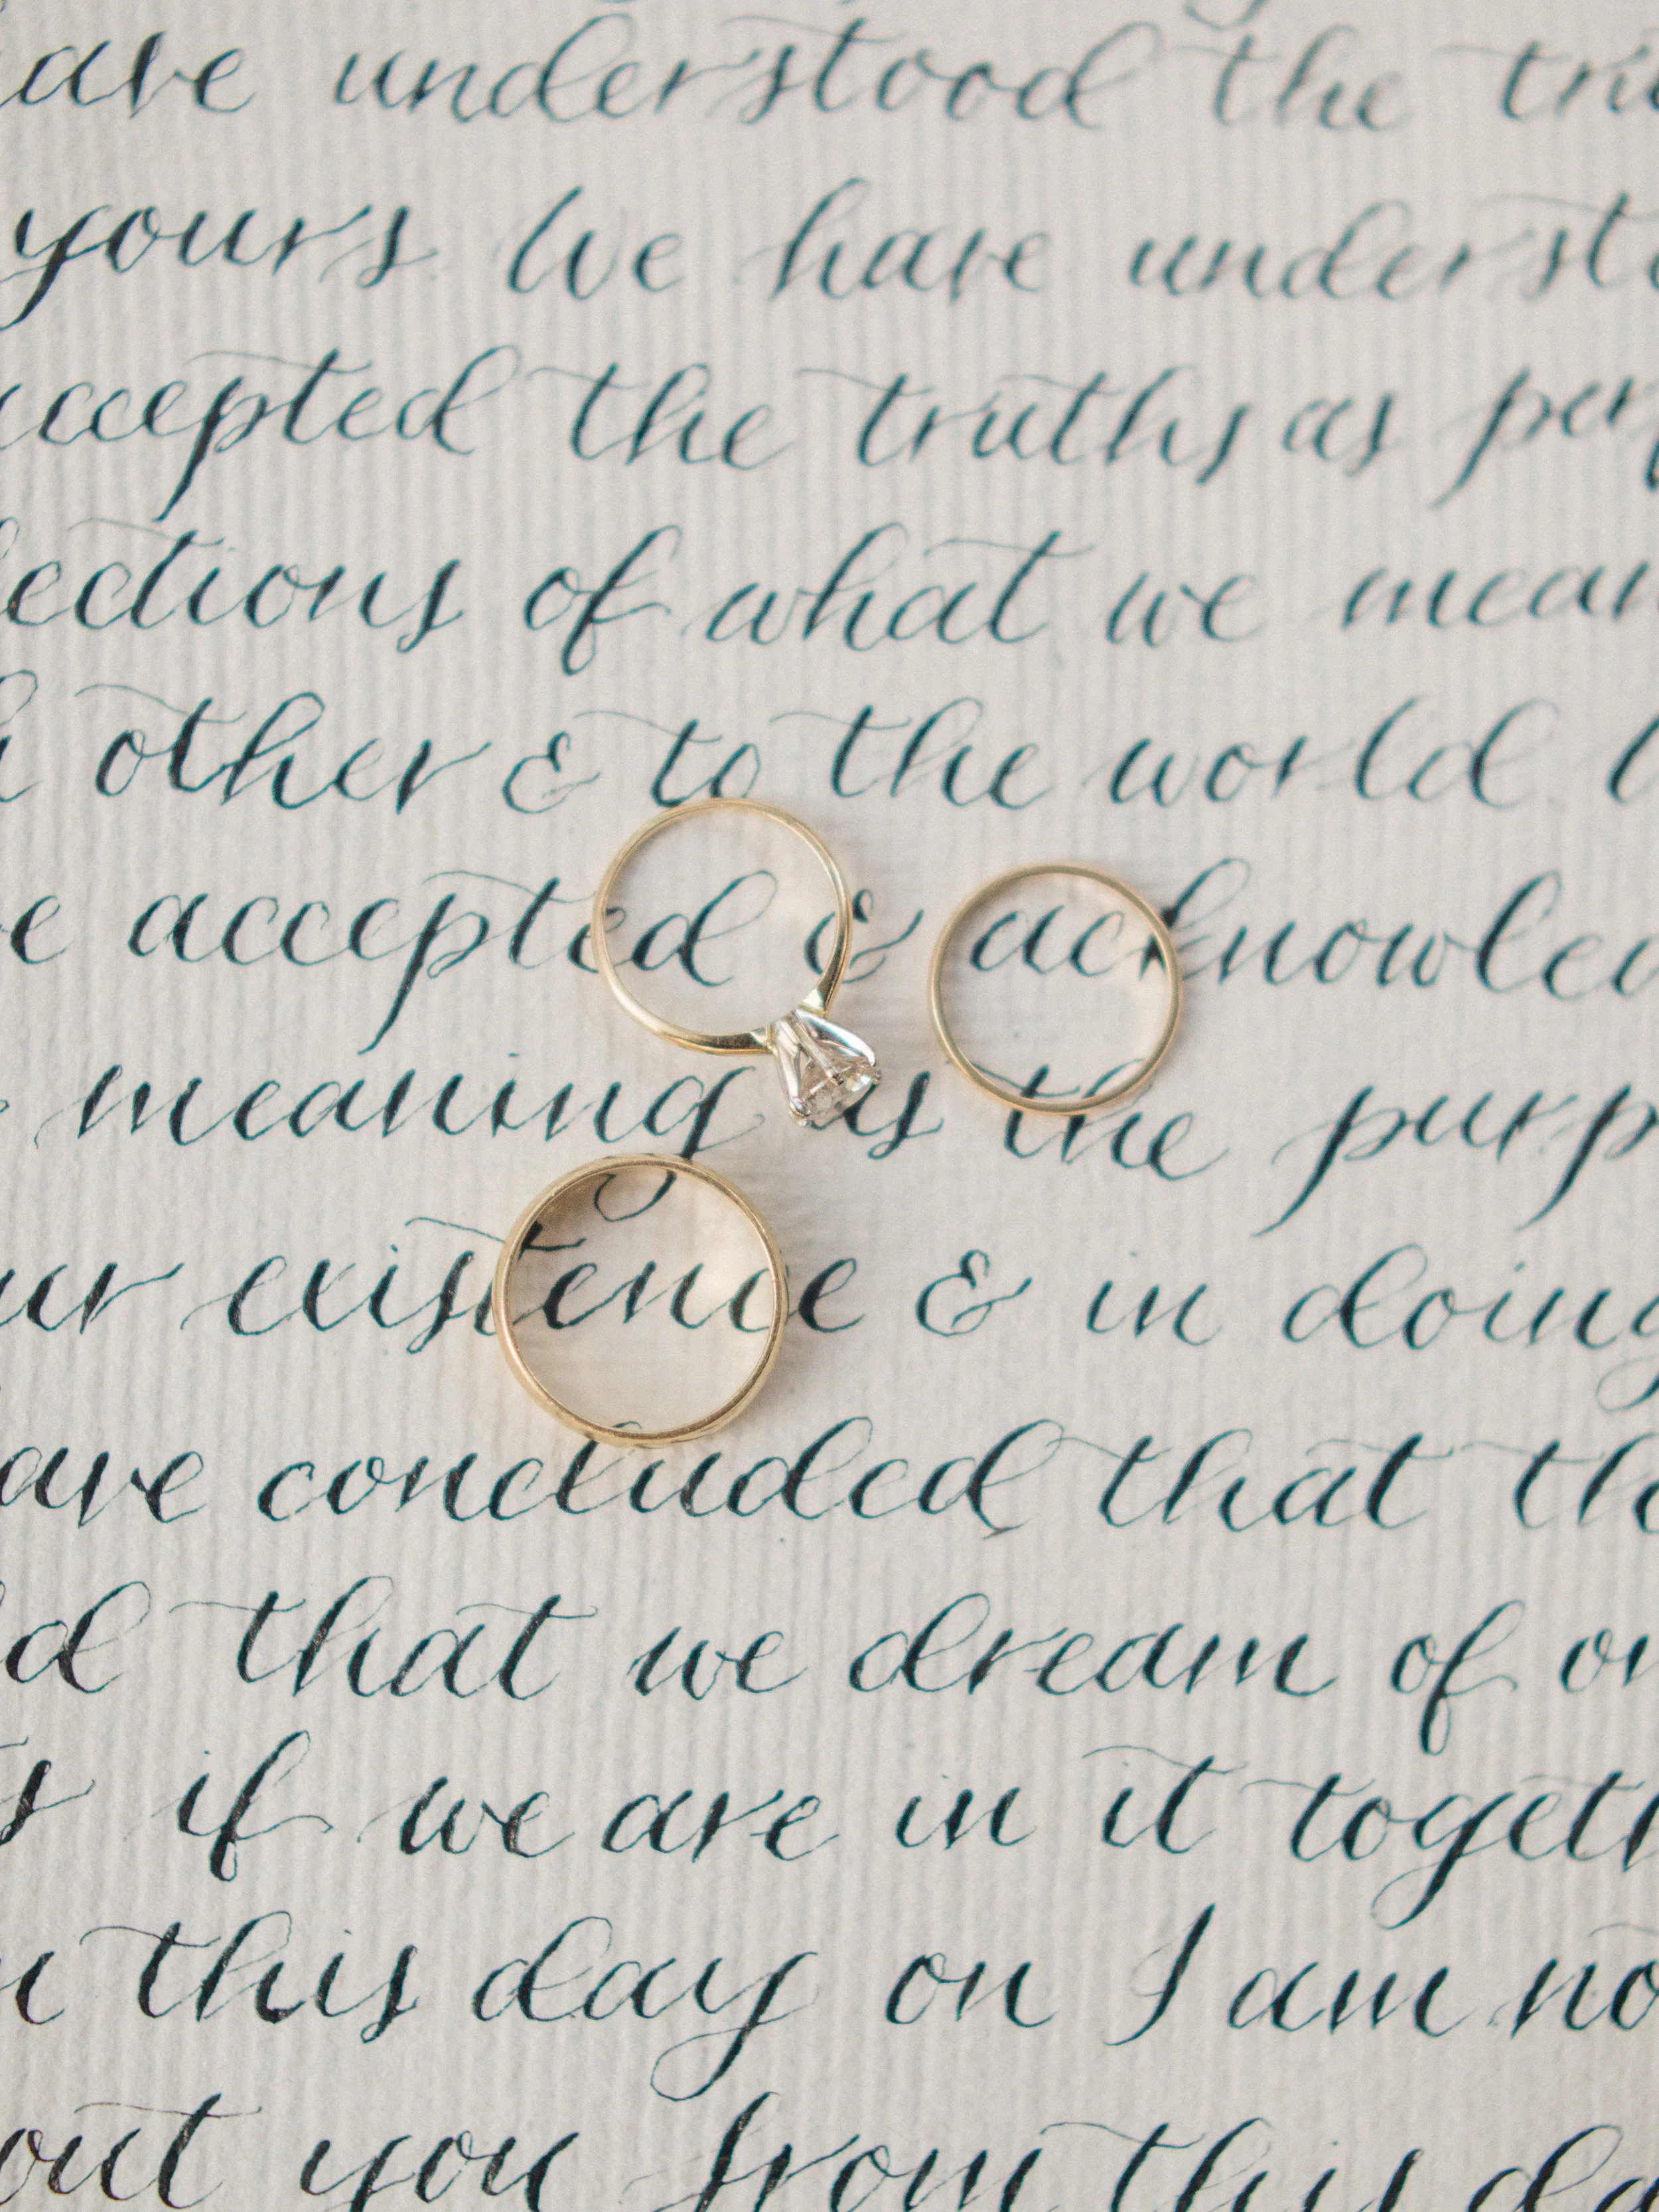 ave understood the tru
yours. We have understo
accepted the truths as per
lections of what we mean
h other & to the world.
e accepted & acknowled
meaning as the purp
ur existence & in doing
ave concluded that the
ld that we dream of on
ts if we are in it togeth
m this day on I am no
out you from this da